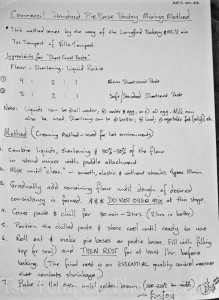 Commercial Standard Pie Base Pastry Mixing Method
* This method comes by the way of the Longford Bakery & Mill via
Tex Tempest of Villa Tempest.
Ingredients for "Short Crust Paste"
Flour : Shortening : Liquid Ratio
① 4 : 2 : 1 Firm Shortcrust Paste
② 3 : 2 : 1 Soft / Standard Shortcrust Paste
Note: Liquids can be all water; water & egg; or all egg. Milk can
also be used. Shortening can be butter; lard;
Method (Creaming Method - used for hot environments)
1. Combine liquids, shortening & 50%-60% of the flour
in stand mixer with paddle attachment
2. Mix until "clear" - smooth, elastic & without streaks Approx 10min.
3. Gradually add remaining flour until dough of desired
consistency is formed. *** DO NOT over mix at this stage.
4. Cover paste & chill for 30min - 2hrs (2hrs is better)
5. Portion the chilled paste & store cool until ready to use
6. Roll out & make pie bases or pastie bases. Fill with filling
top (or seal) and THEN REST for at least 1hr. before
baking. (The final rest is an ESSENTIAL quality control measure
that combats shrinkage)
7. Bake in Hot oven until golden brown.
Enjoy